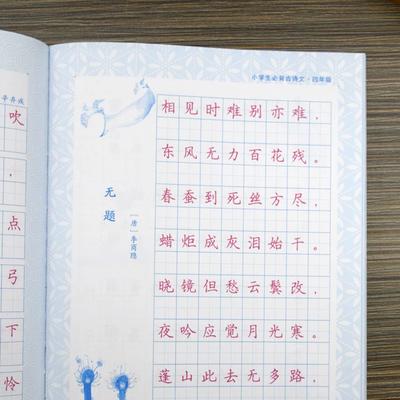 小学生必背古诗文·四年级
无题
［唐］李商隐
相见时难别亦难，
东风无力百花残。
春蚕到死丝方尽，
蜡炬成灰泪始干。
晓镜但愁云鬓改，
夜吟应觉月光寒。
蓬山此去无多路，
吹
，
点
弓
下
怜